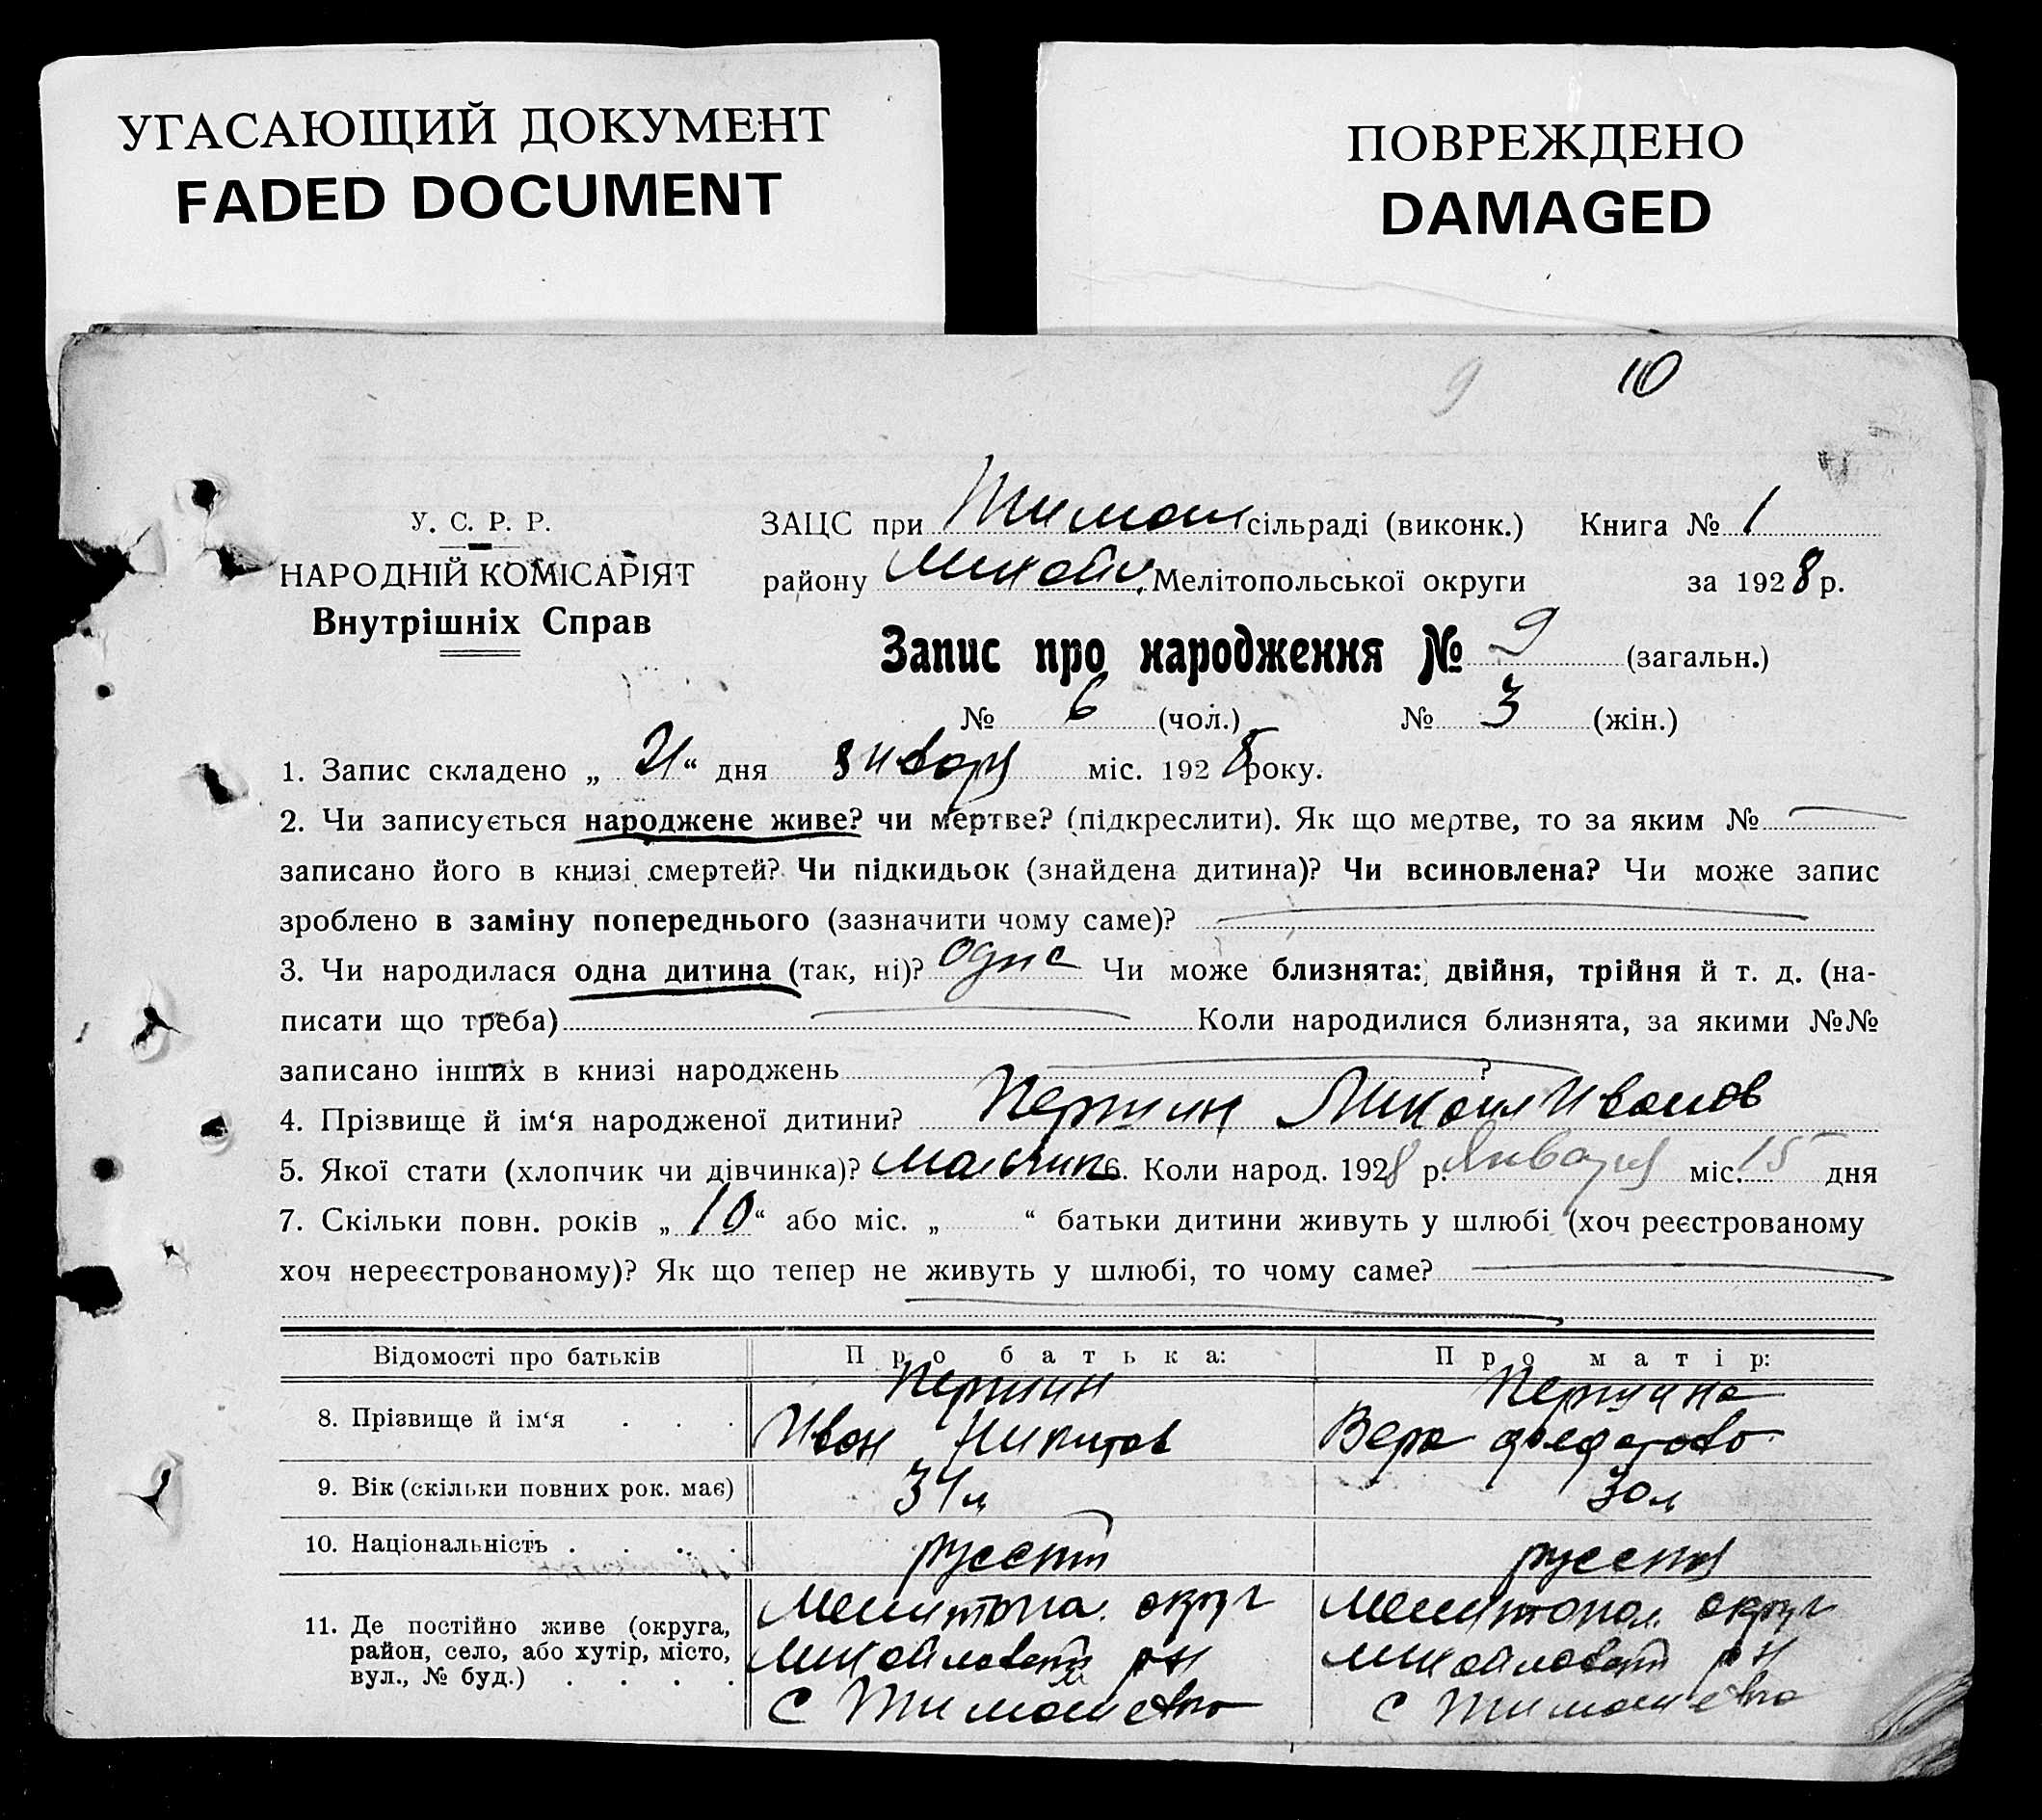 УГАСАЮЩИЙ ДОКУМЕНТ
FADED DOCUMENT
ПОВРЕЖДЕНО
DAMAGED
9 10
У. С. Р. Р.
НАРОДНІЙ КОМІСАРІЯТ
Внутрішніх Справ
ЗАЦС при Тимош сільраді (виконк.) Книга № 1
району Михайл. Мелітопольської округи за 1928 р.
Запис про народження № 9 (загальн.)
№ 6 (чол.) № 3 (жін.)
1. Запис складено „ 21 “ дня января міс. 1928 року.
2. Чи записується народжене живе? чи мертве? (підкреслити). Як що мертве, то за яким №
записано його в книзі смертей? Чи підкидьок (знайдена дитина)? Чи всиновлена? Чи може запис
зроблено в заміну попереднього (зазначити чому саме)?
3. Чи народилася одна дитина (так, ні)? одна Чи може близнята: двійня, трійня й т. д. (на-
писати що треба) Коли народилися близнята, за якими №№
записано інших в книзі народжень ?
4. Прізвище й ім‘я народженої дитини? Першин Михаил Иванов
5. Якої стати (хлопчик чи дівчинка)? мальчик 6. Коли народ. 1928 р. Января міс. 15 дня
7. Скільки повн. років „ 10 “ або міс. „ “ батьки дитини живуть у шлюбі (хоч реєстрованому
хоч нереєстрованому)? Як що тепер не живуть у шлюбі, то чому саме?
Відомості про батьків Про батька: Про матір:
8. Прізвище й ім‘я . . . Першин Першина
Иван Никитов Вера
9. Вік (скільки повних рок. має) 34 л 30 л
10. Національність . . . . русский русская
11. Де постійно живе (округа, район, село, або хутір, місто, вул., № буд.) . . . .
Мелитопол. округ Мелитопол. округ
Михайловский р-н Михайловский р-н
С Тимошевка С Тимошевка